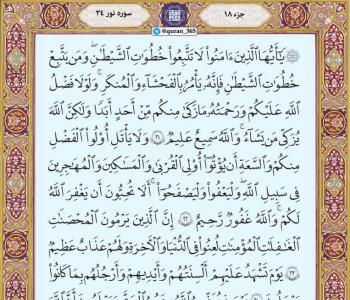 سوره نور ۲۴
@quran_365
جزء ۱۸
يَٰٓأَيُّهَا ٱلَّذِينَ ءَامَنُوا۟ لَا تَتَّبِعُوا۟ خُطُوَٰتِ ٱلشَّيْطَٰنِ وَمَن يَتَّبِعْ
خُطُوَٰتِ ٱلشَّيْطَٰنِ فَإِنَّهُۥ يَأْمُرُ بِٱلْفَحْشَآءِ وَٱلْمُنكَرِ وَلَوْلَا فَضْلُ
ٱللَّهِ عَلَيْكُمْ وَرَحْمَتُهُۥ مَا زَكَىٰ مِنكُم مِّنْ أَحَدٍ أَبَدًا وَلَٰكِنَّ ٱللَّهَ
يُزَكِّى مَن يَشَآءُ وَٱللَّهُ سَمِيعٌ عَلِيمٌ ۝٢١ وَلَا يَأْتَلِ أُو۟لُوا۟ ٱلْفَضْلِ
مِنكُمْ وَٱلسَّعَةِ أَن يُؤْتُوٓا۟ أُو۟لِى ٱلْقُرْبَىٰ وَٱلْمَسَٰكِينَ وَٱلْمُهَٰجِرِينَ
فِى سَبِيلِ ٱللَّهِ وَلْيَعْفُوا۟ وَلْيَصْفَحُوٓا۟ أَلَا تُحِبُّونَ أَن يَغْفِرَ ٱللَّهُ
لَكُمْ وَٱللَّهُ غَفُورٌ رَّحِيمٌ ۝٢٢ إِنَّ ٱلَّذِينَ يَرْمُونَ ٱلْمُحْصَنَٰتِ
ٱلْغَٰفِلَٰتِ ٱلْمُؤْمِنَٰتِ لُعِنُوا۟ فِى ٱلدُّنْيَا وَٱلْءَاخِرَةِ وَلَهُمْ عَذَابٌ عَظِيمٌ
۝٢٣ يَوْمَ تَشْهَدُ عَلَيْهِمْ أَلْسِنَتُهُمْ وَأَيْدِيهِمْ وَأَرْجُلُهُم بِمَا كَانُوا۟